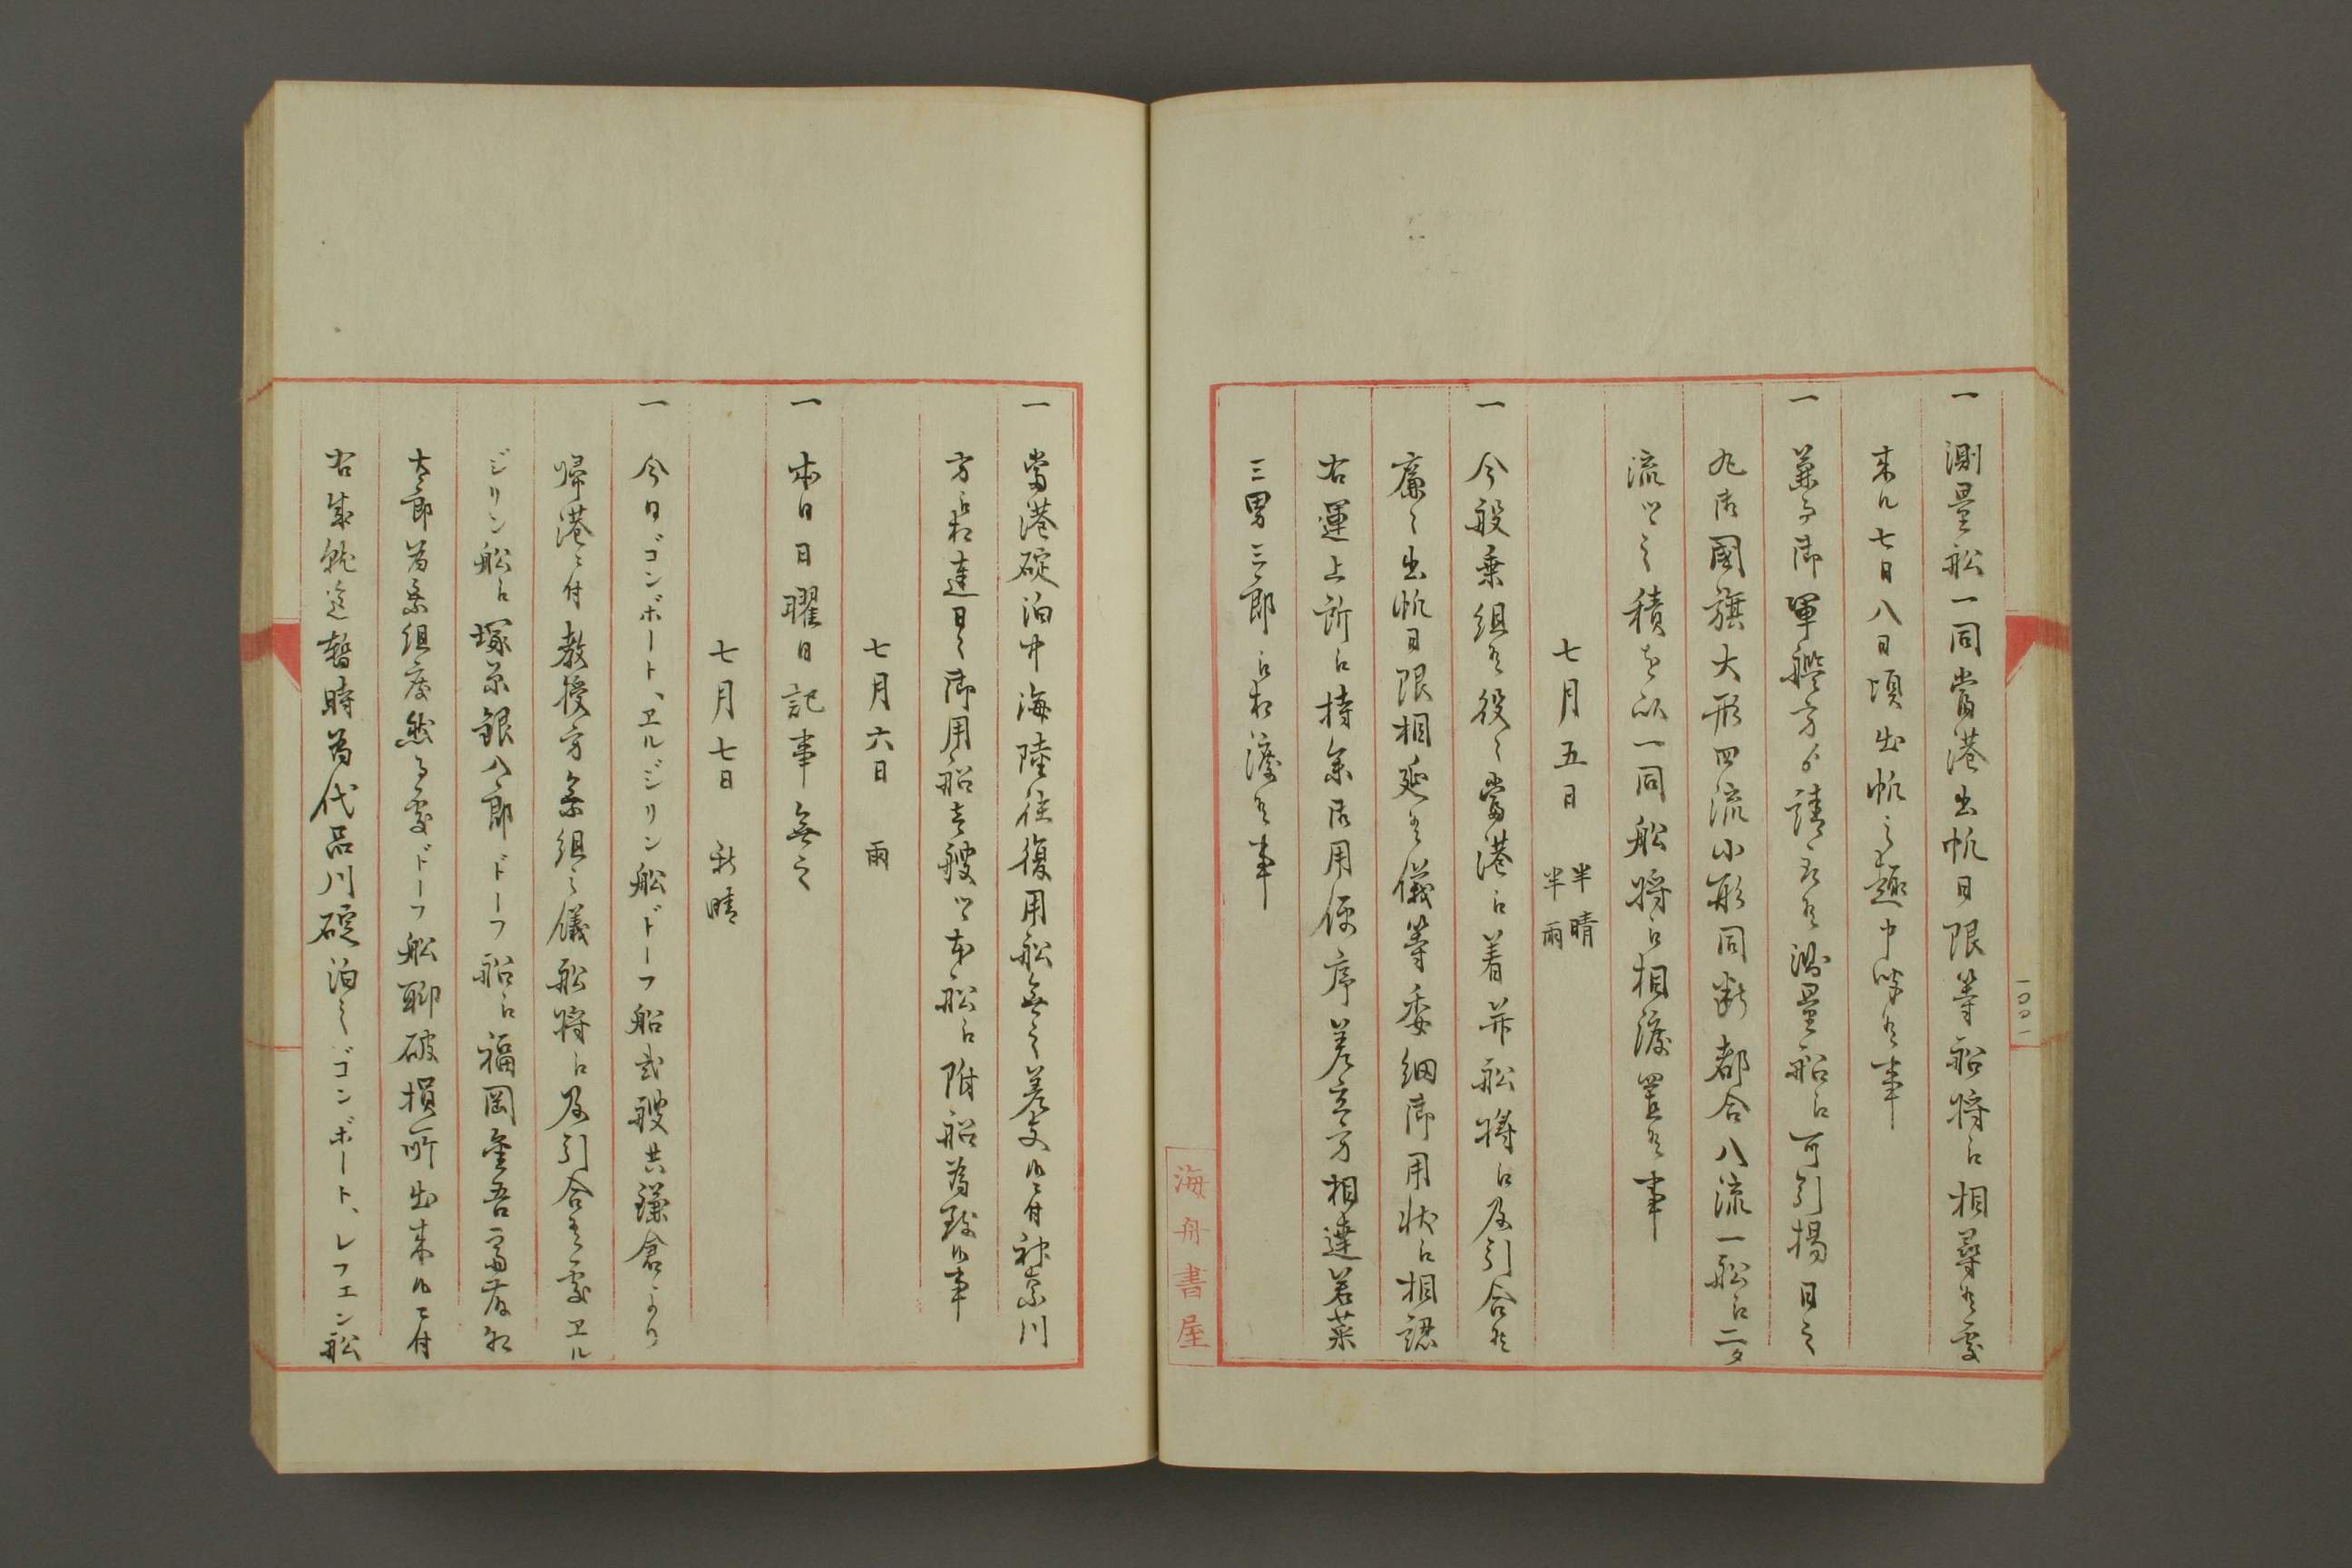 一 測量舩一同當港出帆日限等船将江相尋候處
来ル七日八日頃出帆之趣申聞候事
一 兼而御軍艦方ゟ請取候測量船江可引揚日之
丸御國旗大形四流小形同断都合八流一舩江二タ
流ツヽ之積を以一同舩将江相渡置候事
七月五日 半晴半雨
一 今般乗組候役々當港江着并舩将江及引合候
廉々出帆日限相延候儀等委細御用状江相認
右運上所江持参御用便序差立方相達若菜
三男三郎江相渡候事
一 當港碇泊中海陸往復用舩無之差支候ニ付神奈川
方江相達日々御用船壱艘ツヽ本舩江附船為致候事
七月六日 雨
一 本日日曜日記事無之
七月七日 新晴
一 今日ゴンボート、ヱルジリン舩ドーフ船弐艘共鎌倉より
帰港ニ付教授方乗組之儀舩将江及引合候處ヱル
ジリン舩江塚原銀八郎ドーフ船江福岡金吾
太郎為乗組度然る處ドーフ舩聊破損所出来候ニ付
右成就迄暫時為代品川碇泊之ゴンボート、レフエン舩
海舟書屋